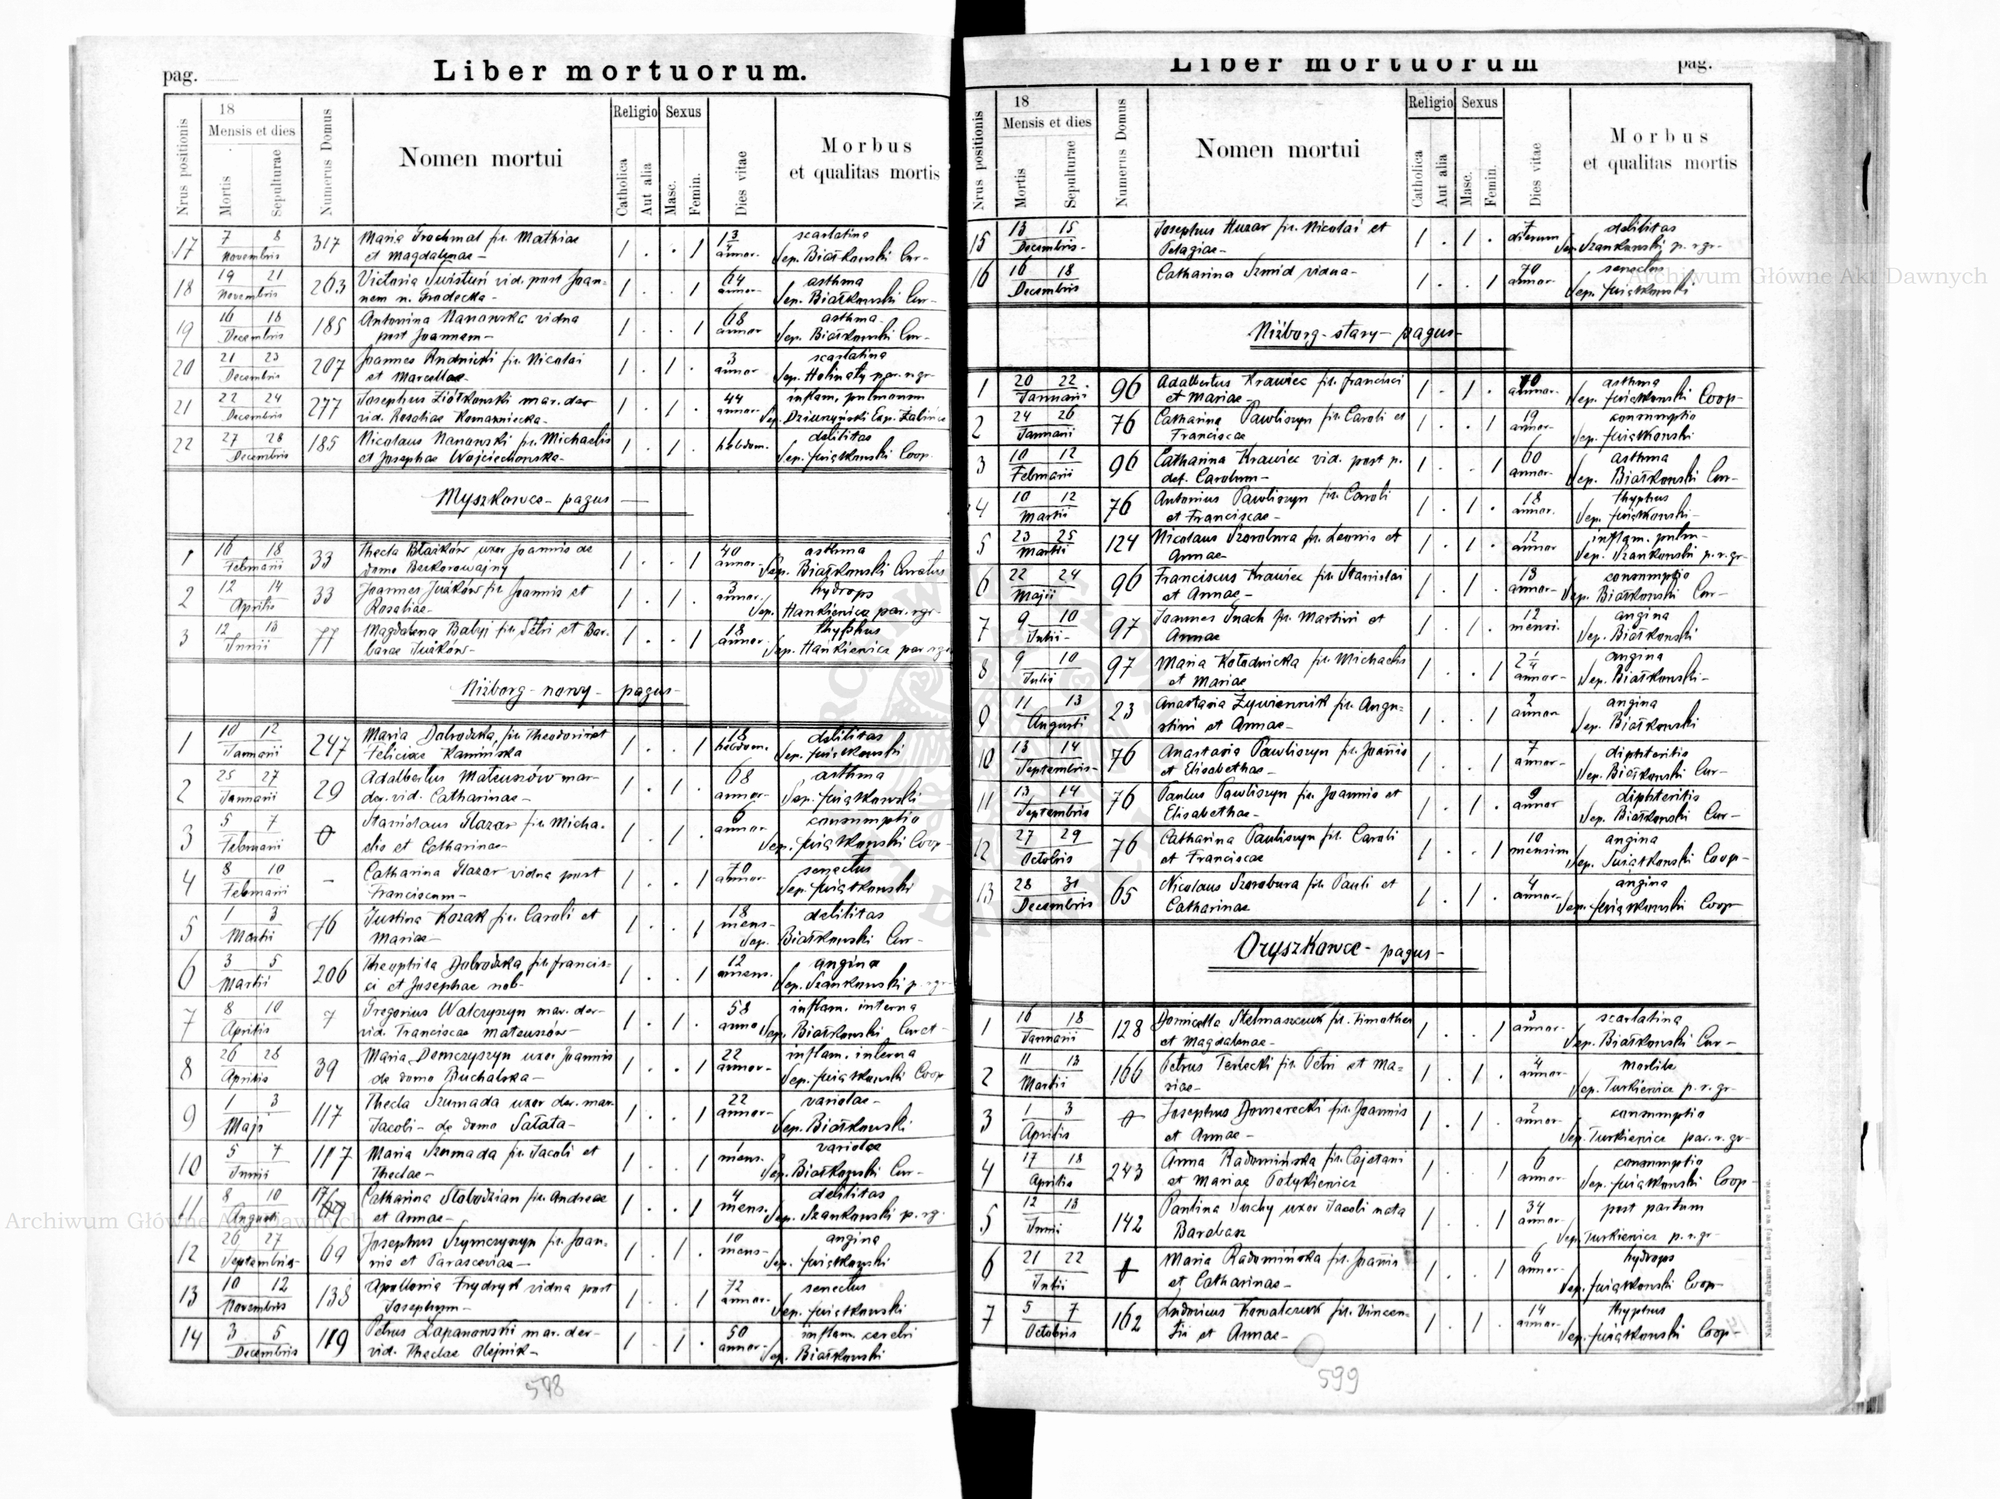 pag.
Liber mortuorum.
Nrus positionis
18
Mensis et dies
Mortis
Sepulturae
Numerus Domus
Nomen mortui
Religio
Catholica
Aut alia
Sexus
Masc.
Femin.
Dies vitae
Morbus
et qualitas mortis
17 7 8 317 Maria Grochmal fil. Mathiae 1 . . 1 scarlatina
Novembris et Magdalenae annor. Sep. Białkowski Cur-
18 19 21 263 Victoria vid. post Joan- 1 . . 1 64 asthma
Novembris nem n. Gradecka annor. Sep. Białkowski Cur-
19 16 18 185 Antonina Nanowska vidua 1 . . 1 68 asthma
Decembris post Joannem annor Sep. Białkowski Cur-
20 21 23 207 Joannes Rudnicki fil. Nicolai 1 . 1 . 3 scarlatina
Decembris et Marcellae annor Sep. Holinaty par. r. gr
21 22 24 277 Josephus Ziółkowski mar. der 1 . 1 . 44 inflam. pulmonum
Decembris vid. Rosaliae Komarnicka annor. Sep.
22 27 28 185 Nicolaus Nanowski fil. Michaelis 1 . 1 . 1 hebdom. debilitas
Decembris et Josephae Wojciechowska Sep. Świątkowski Coop
Myszkowce - pagus
1 16 18 33 Thecla uxor Joannis de 1 . . 1 40 asthma
Februarii domo Bezkorowajny annor. Sep. Białkowski Curatus
2 12 14 33 Joannes fil. Joannis et 1 . 1 . 3 hydrops
Aprilis Rosaliae annor. Sep. Hankiewicz par. r. gr
3 12 13 77 Magdalena Babyj fil. Petri et Bar- 1 . . 1 18 thyphus
Junii barae annor. Sep. Hankiewicz par r. gr
Niżborg - nowy - pagus
1 10 12 247 Maria Dobrodzka fil. Theodori et 1 . . 1 18 debilitas
Januarii Felicixae Kamińska hebdom. Sep. Świątkowski
2 25 27 29 Adalbertus Mateuszów mar- 1 . 1 . 68 asthma
Januarii der. vid. Catharinae annor. Sep. Świątkowski
3 5 7 0 Stanislaus Mazar fil. Micha- 1 . 1 . 6 consumptio
Februarii elis et Catharinae annor Sep. Świątkowski Coop
4 8 10 - Catharina Mazar vidua post 1 . . 1 70 senectus
Februarii Franciscum annor Sep. Świątkowski
5 1 3 76 Justina Kozak fil. Caroli et 1 . . 1 18 debilitas
Martii Mariae mens- Sep. Białkowski Cur-
6 3 5 206 Theophila Dobrodzka fil. Francis- 1 . . 1 12 angina
Martii ci et Josephae nob- mens. Sep. Szankowski p. r. gr-
7 8 10 7 Gregorius Walczyszyn mar. der- 1 . 1 . 58 inflam. interna
Aprilis vid. Franciscae Mateuszów anno Sep. Białkowski Curat-
8 26 28 39 Maria Domczyszyn uxor Joannis 1 . . 1 22 inflam. interna
Aprilis de domo Buchalska annor- Sep. Świątkowski Coop
9 1 3 117 Thecla Szumada uxor der. mar. 1 . . 1 22 variolae-
Maji Jacobi - de domo Sałata annor- Sep. Białkowski
10 5 7 117 Maria Szumada fil. Jacobi et 1 . . 1 1 variolae
Junii Theclae mens. Sep. Białkowski Cur-
11 8 10 Catharina Słobodzian fil. Andreae 1 . . 1 4 debilitas
Augusti et Annae mens. Sep. Szankowski p. r. g.
12 26 27 69 Josephus Szymczyszyn fil. Joan- 1 . 1 . 10 angina
Septembris nis et Parasceviae mens- Sep. Świątkowski
13 10 12 138 Apollonia Frydryk vidua post 1 . . 1 72 senectus
Novembris Josephum annor- Sep. Świątkowski
14 3 5 119 Petrus Łapanowski mar. der- 1 . 1 . 50 inflam. cerebri
Decembris vid. Theclae Olejnik annor- Sep. Białkowski
598
Liber mortuorum
pag.
Nrus positionis
18
Mensis et dies
Mortis
Sepulturae
Numerus Domus
Nomen mortui
Religio
Catholica
Aut alia
Sexus
Masc.
Femin.
Dies vitae
Morbus
et qualitas mortis
15 13 15 Josephus Huzar fil. Nicolai et 1 . 1 . 7 debilitas
Decembris Pelagiae dierum Sep. Szankowski p. r. gr-
16 16 18 Catharina Szmid vidua 1 . . 1 70 senectus
Decembris annor Sep. Świątkowski
Niżborg - stary - pagus
1 20 22 96 Adalbertus Krawiec fil. Francisci 1 . 1 . 70 asthma
Januarii et Mariae annor. Sep. Świątkowski Coop-
2 24 26 76 Catharina Pawliszyn fil. Caroli et 1 . . 1 19 consumptio
Januarii Franciscae annor- Sep. Świątkowski
3 10 12 96 Catharina Krawiec vid. post p. 1 . . 1 60 asthma
Februarii def. Carolum annor- Sep. Białkowski Cur-
4 10 12 76 Antonius Pawliszyn fil. Caroli 1 . 1 . 18 thyphus
Martii et Franciscae annor. Sep. Świątkowski
5 23 25 124 Nicolaus Szorobura fil. Leonis et 1 . 1 . 12 inflam. pulm-
Martii Annae annor Sep. Szankowski p. r. gr-
6 22 24 96 Franciscus Krawiec fil. Stanislai 1 . 1 . 13 consumptio
Maji et Annae annor- Sep. Białkowski Cur-
7 9 10 97 Joannes Gnach fil. Martini et 1 . 1 . 12 angina
Julii Annae mensi. Sep. Białkowski
8 9 10 97 Maria Kołodnicka fil. Michaelis 1 . . 1 2¼ angina
Julii et Mariae annor- Sep. Białkowski
9 11 13 23 Anastasia Żywiennik fil. Augu- 1 . . 1 2 angina
Augusti stini et Annae annor Sep. Białkowski
10 13 14 76 Anastasia Pawliszyn fil. Joannis 1 . . 1 7 diphteritis
Septembris et Elisabethae annor- Sep. Białkowski Cur-
11 13 14 76 Paulus Pawliszyn fil. Joannis et 1 . 1 . 9 diphteritis
Septembris Elisabethae annor Sep. Białkowski Cur-
12 27 29 76 Catharina Pawliszyn fil. Caroli 1 . . 1 10 angina
Octobris et Franciscae mensium Sep. Świątkowski Coop-
13 28 31 65 Nicolaus Szorobura fil. Pauli et 1 . 1 . 4 angina
Decembris Catharinae annor- Sep. Świątkowski Coop
Oryszkowce - pagus
1 16 18 128 Domicella Stelmaszczuk fil. Timothei 1 . . 1 3 scarlatina
Januarii et Magdalenae annor- Sep. Białkowski Cur-
2 11 13 166 Petrus Terlecki fil. Petri et Ma- 1 . 1 . 4 morbile
Martii riae annor- Sep. Turkiewicz p. r. gr-
3 1 3 0 Josephus Domerecki fil. Joannis 1 . 1 . 2 consumptio
Aprilis et Annae annor- Sep. Turkiewicz par. r. gr-
4 17 18 243 Anna Radomińska fil. Cajetani 1 . . 1 6 consumptio
Aprilis et Mariae Potykiewicz annor- Sep. Świątkowski Coop-
5 12 13 142 Paulina Suchy uxor Jacobi nata 1 . . 1 34 post partum
Junii Barabasz annor- Sep. Turkiewicz p. r. gr-
6 21 22 0 Maria Radomińska fil. Joannis 1 . . 1 6 hydrops
Julii et Catharinae annor- Sep. Świątkowski Coop-
7 5 7 162 Ludovicus Kowalczuk fil. Vincen- 1 . 1 . 14 thyphus
Octobris tii et Annae annor- Sep. Świątkowski Coop-
Nakładem drukarni Ludowej we Lwowie.
599
Archiwum Główne Akt Dawnych
Archiwum Główne Akt Dawnych